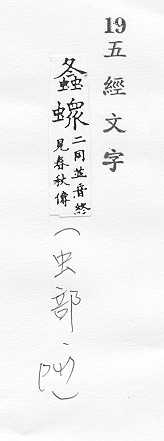 19五經文字
螽䗥
二同並音終
見春秋傳
（虫部，）